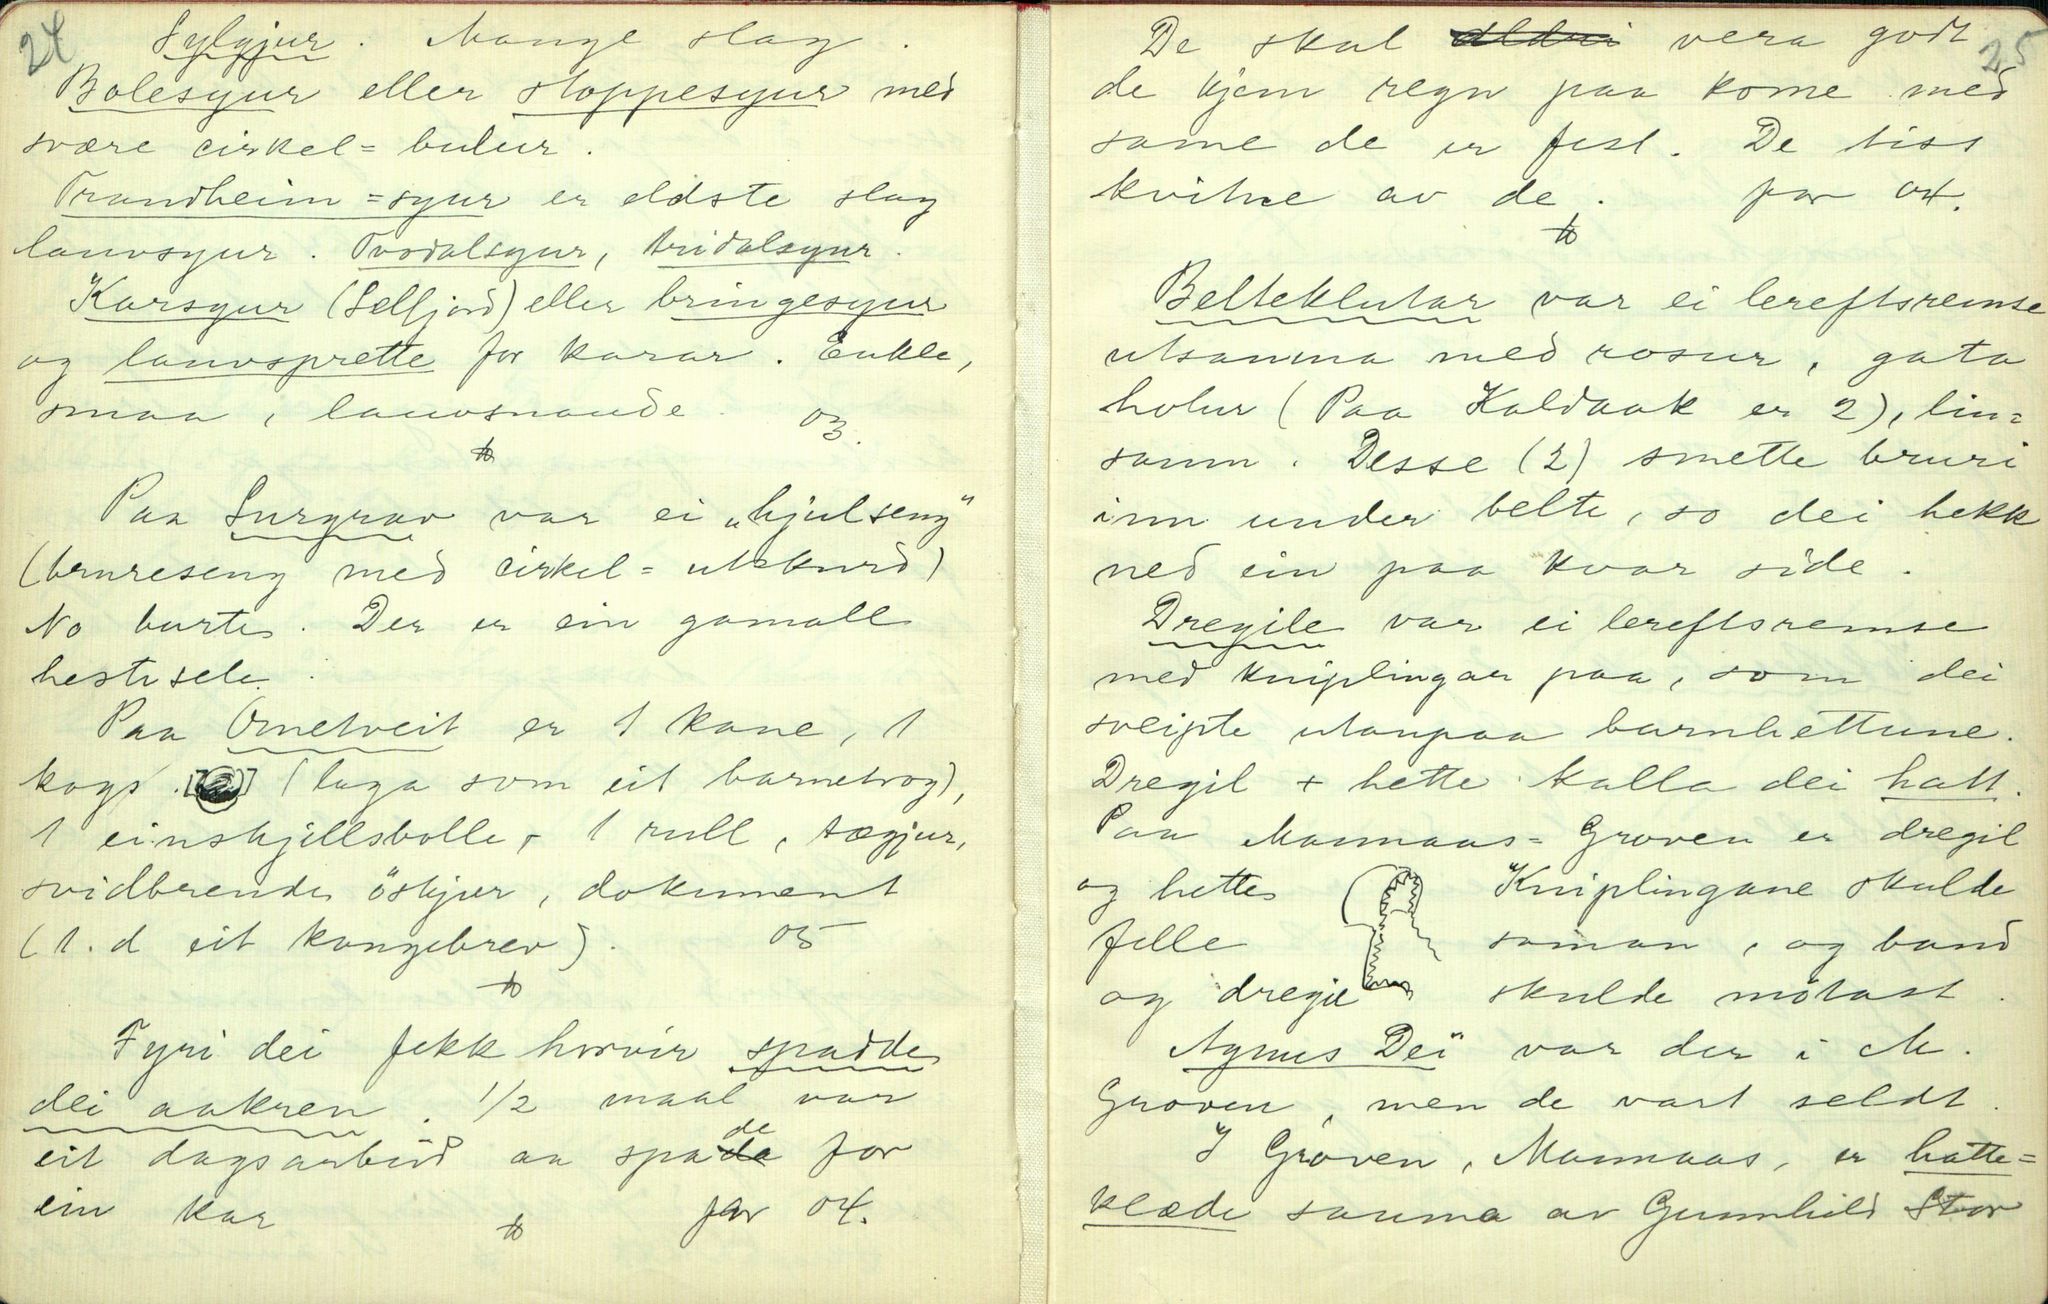 24
Sylgjur. Mange slag.
Bolesyur eller stoppesyur med
svære cirkel= bulur.
Trandheim=syur er eldste slag
lauvsyur. Tvodalsyur, tridalsyur.
Karsyur (Selfjord) eller bringesyur
og lauvsprette for karar. Enkle,
smaa, lauvsnaude. 03.
Paa Surgrav var ei "hjulseng"
(brureseng med cirkel= utskurd)
No burte. Der er ein gamall
hestesele.
Paa Ornetveit er 1 kane, 1
kogs. (laga som eit barnetrog),
1 einskjillsbolle, 1 rull, tægjur,
svidbrende öskjur, dokument
(1. d eit kongebrev). 05
Fyri dei fekk horvir spadde
dei aakren. 1/2 maal var
eit dagsarbeid aa spade for
ein kar far 04.
25
De skal aldri vera godt
de kjem regn paa kome med
same de er fest. De tiss
kvitne av de. far 04.
Belteklutar var ei lereftsremse
utsamma med rosur, gata
holur (Paa Kaldaak er 2), lin=
saum. Desse (2) smette bruri
inn under belte, so dei hekk
ned ein paa kvar side.
Dregile var ei lereftsremse
med kniplingar paa, som dei
sveipte utanpaa barnhettune.
Dregil + hette kalla dei hatt.
Paa Manaas= Groven er dregil
og hette Kniplingane skulde
felle saman, og band
og dregil skulde mötast.
Agnus Dei var der i M.
Groven, men de vart seldt.
I Groven, Manaas, er hatte=
klæde sauma av Gunnhild Stor